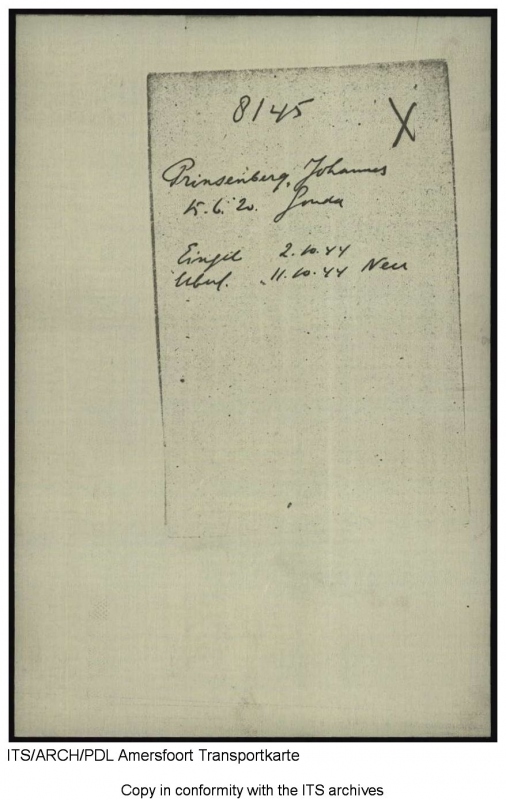 8/45 X
Prinsenberg, Johannes
15.6.20. Gouda
Eingel 2.10.44
Überf. 11.10.44 Neu
ITS/ARCH/PDL Amersfoort Transportkarte
Copy in conformity with the ITS archives